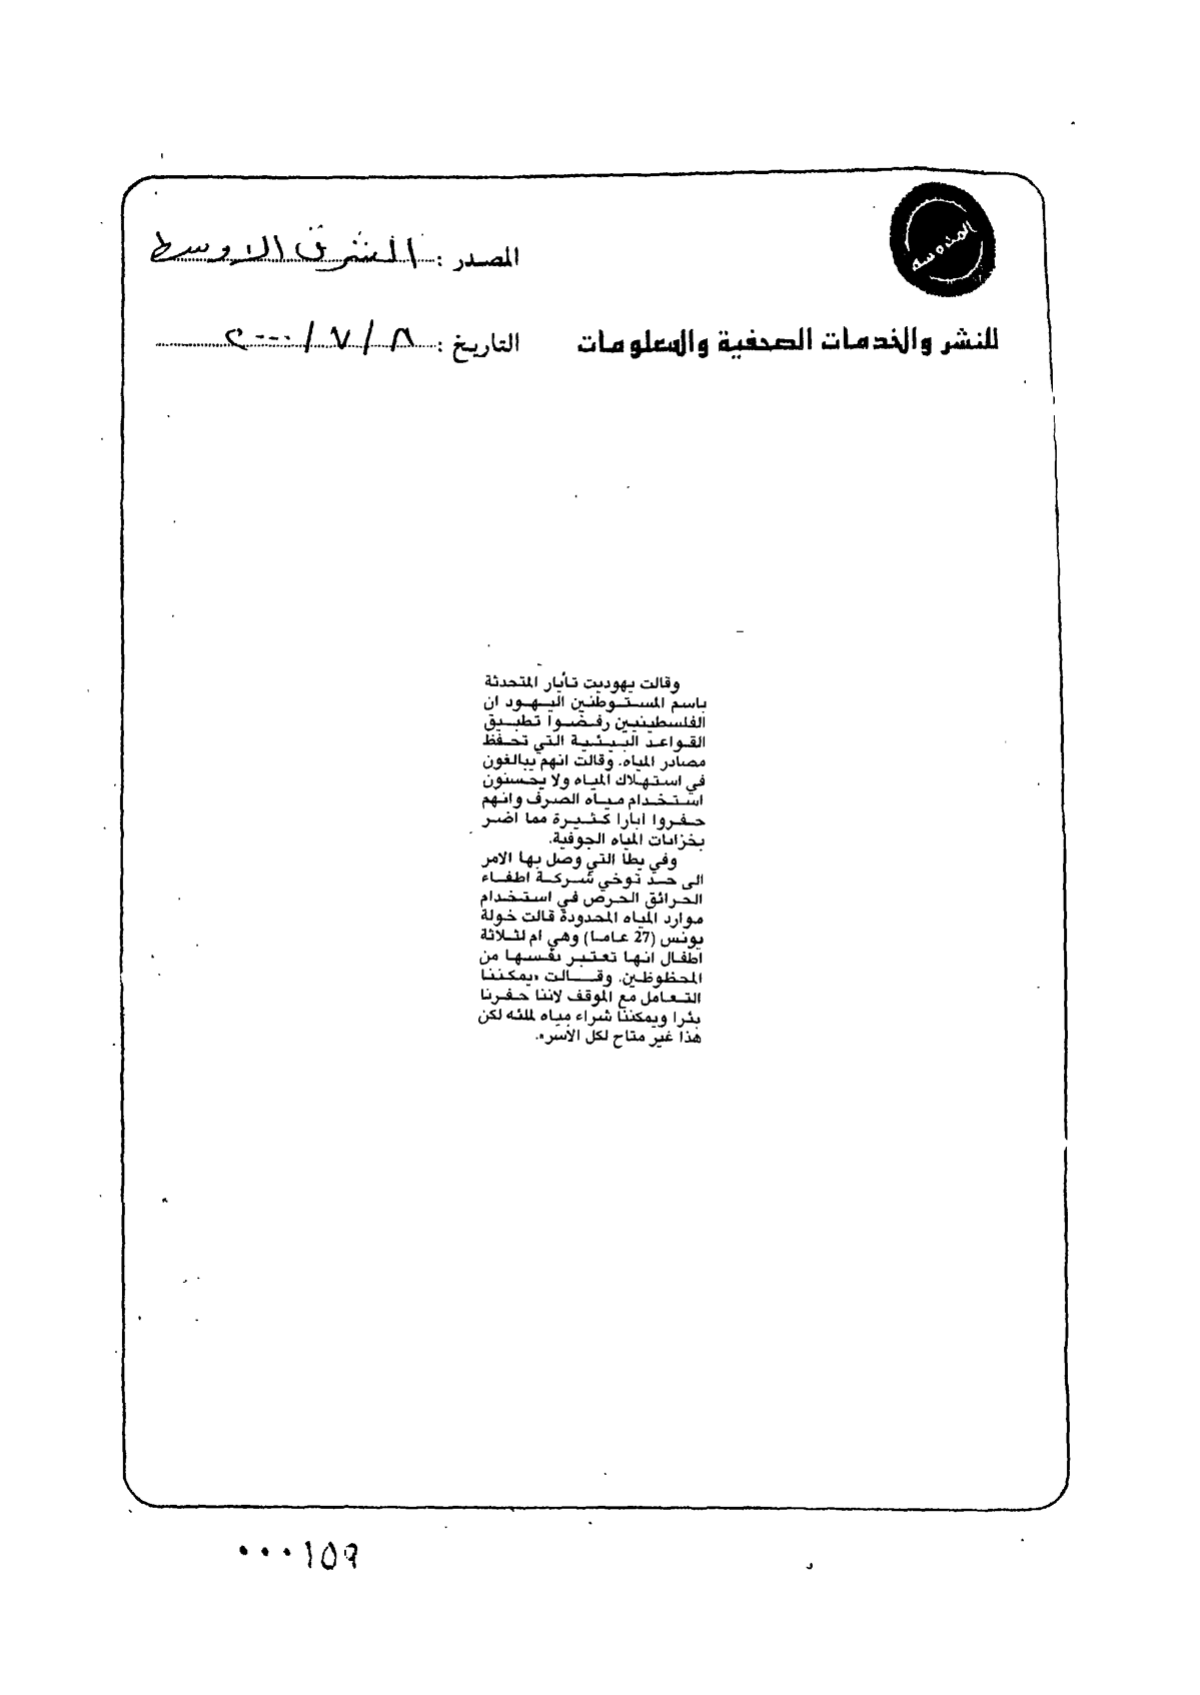 المصدر : الشرق الاوسط
للنشر والخدمات الصحفية والمعلومات
التاريخ : ٨ / ٧ / ٢٠٠٠
وقالت يهوديت تأيار المتحدثة
باسم المستوطنين اليهود ان
الفلسطينيين رفضوا تطبيق
القواعد البيئية التي تحفظ
مصادر المياه. وقالت انهم يبالغون
في استهلاك المياه ولا يحسنون
استخدام مياه الصرف وانهم
حفروا ابارا كثيرة مما اضر
بخزانات المياه الجوفية.
وفي يطا التي وصل بها الامر
الى حد توخي شركة اطفاء
الحرائق الحرص في استخدام
موارد المياه المحدودة قالت خولة
يونس (27 عاما) وهي ام لثلاثة
اطفال انها تعتبر نفسها من
المحظوظين. وقالت «يمكننا
التعامل مع الموقف لاننا حفرنا
بئرا ويمكننا شراء مياه لملئه لكن
هذا غير متاح لكل الاسر».
٠٠٠١٥٩